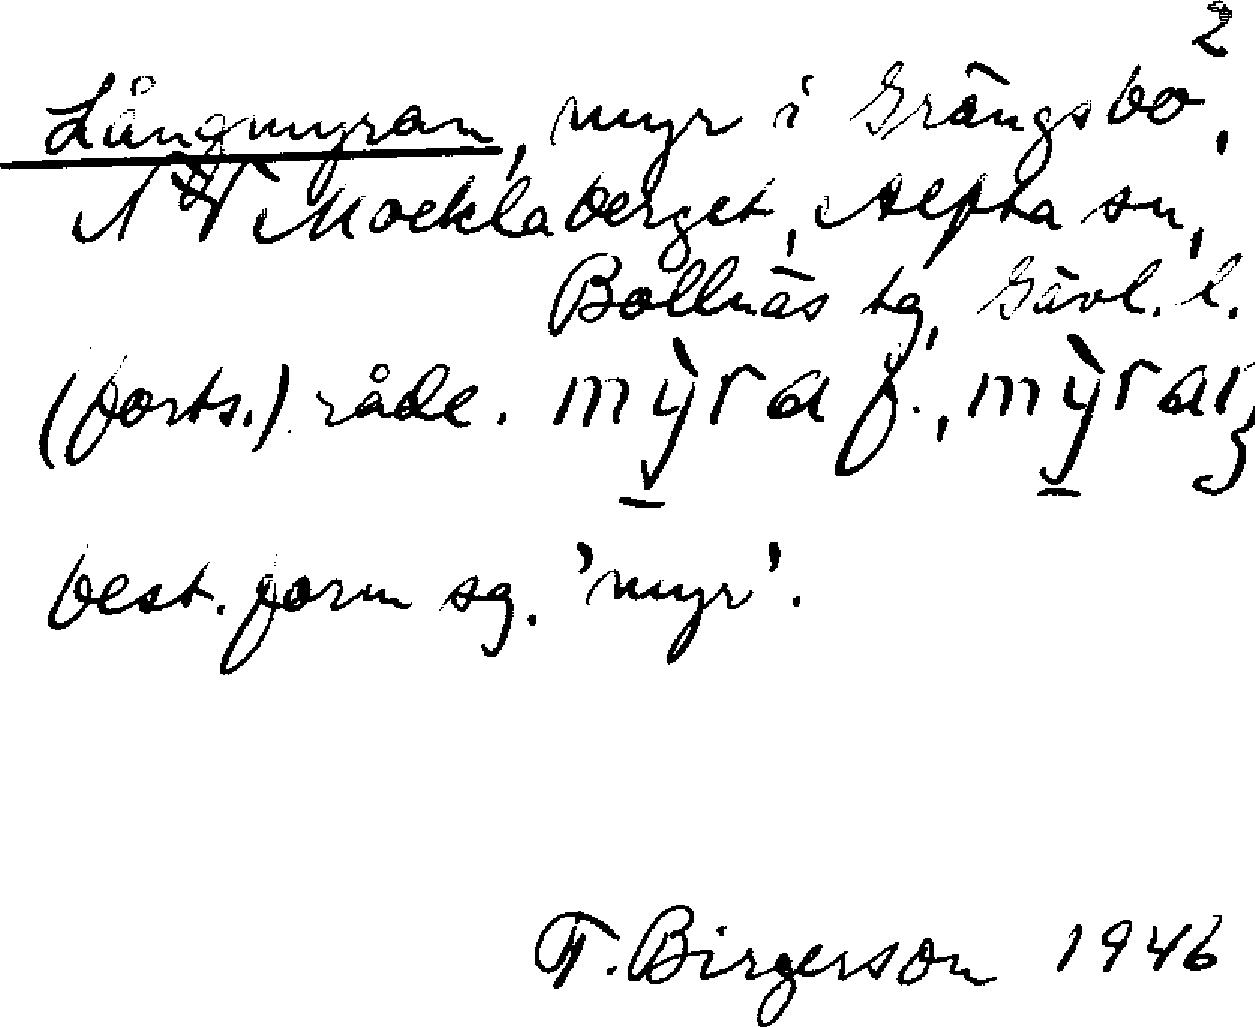 2
Långmyran, myr i Grängsbo,
NV Mocklaberget, Alfta sn,
Bollnäs tg, Gävl. l.
(forts.) råde. mỳra f., mỳraɳ
best. form sg. 'myr'.
T. Birgerson 1946